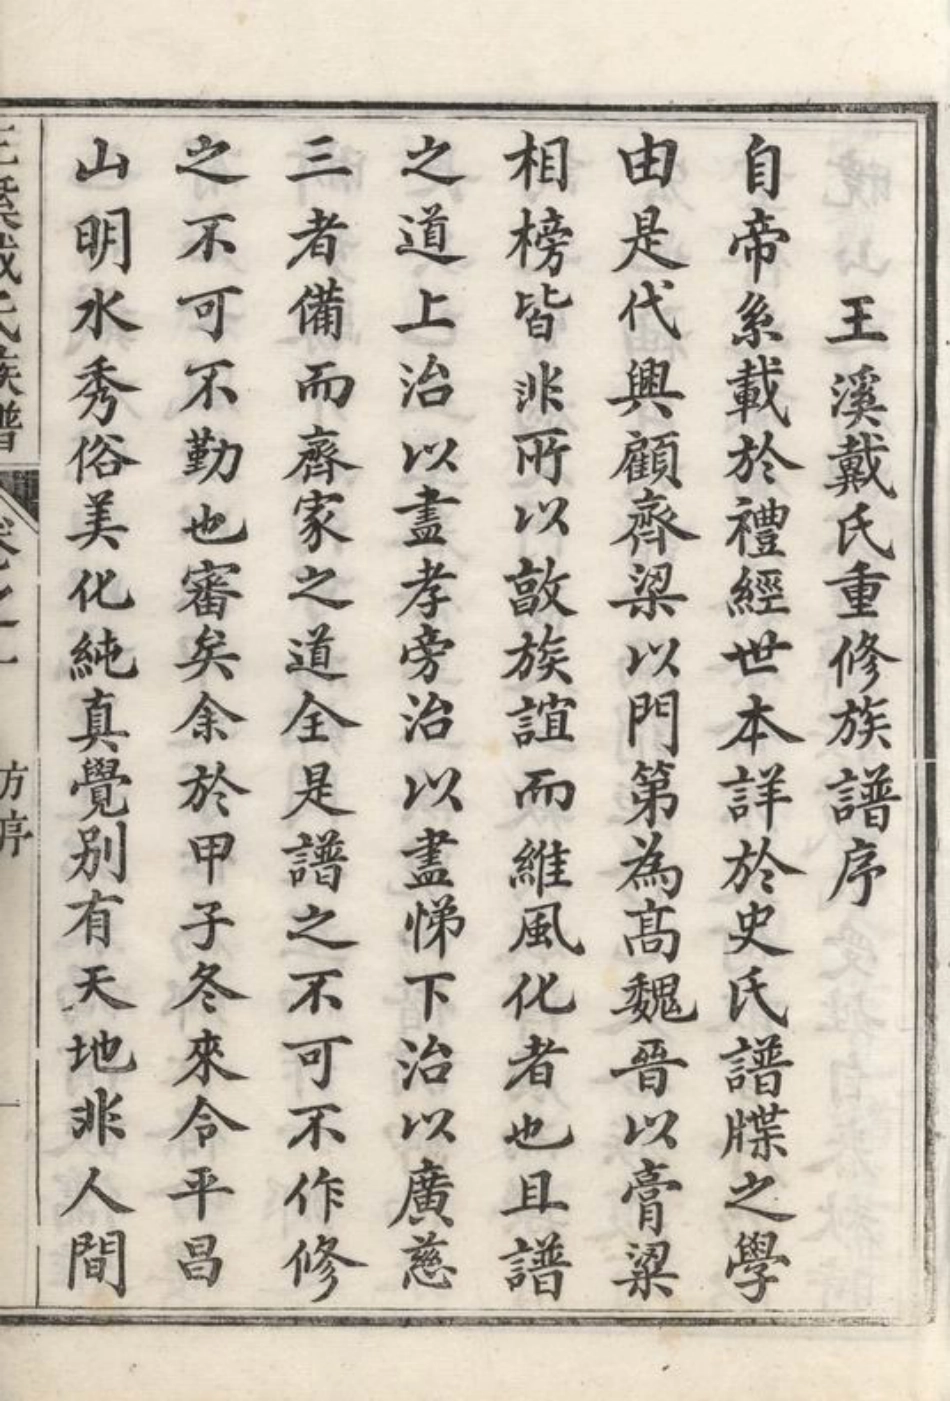 王溪戴氏重修族譜序
自帝系載於禮經世本詳於史氏譜牒之學
由是代興顧齊梁以門第為高魏晉以膏粱
相榜皆非所以敦族誼而維風化者也且譜
之道上治以盡孝旁治以盡悌下治以廣慈
三者備而齊家之道全是譜之不可不作修
之不可不勤也審矣余於甲子冬來令平昌
山明水秀俗美化純真覺別有天地非人間
戴氏族譜
卷之一
方序